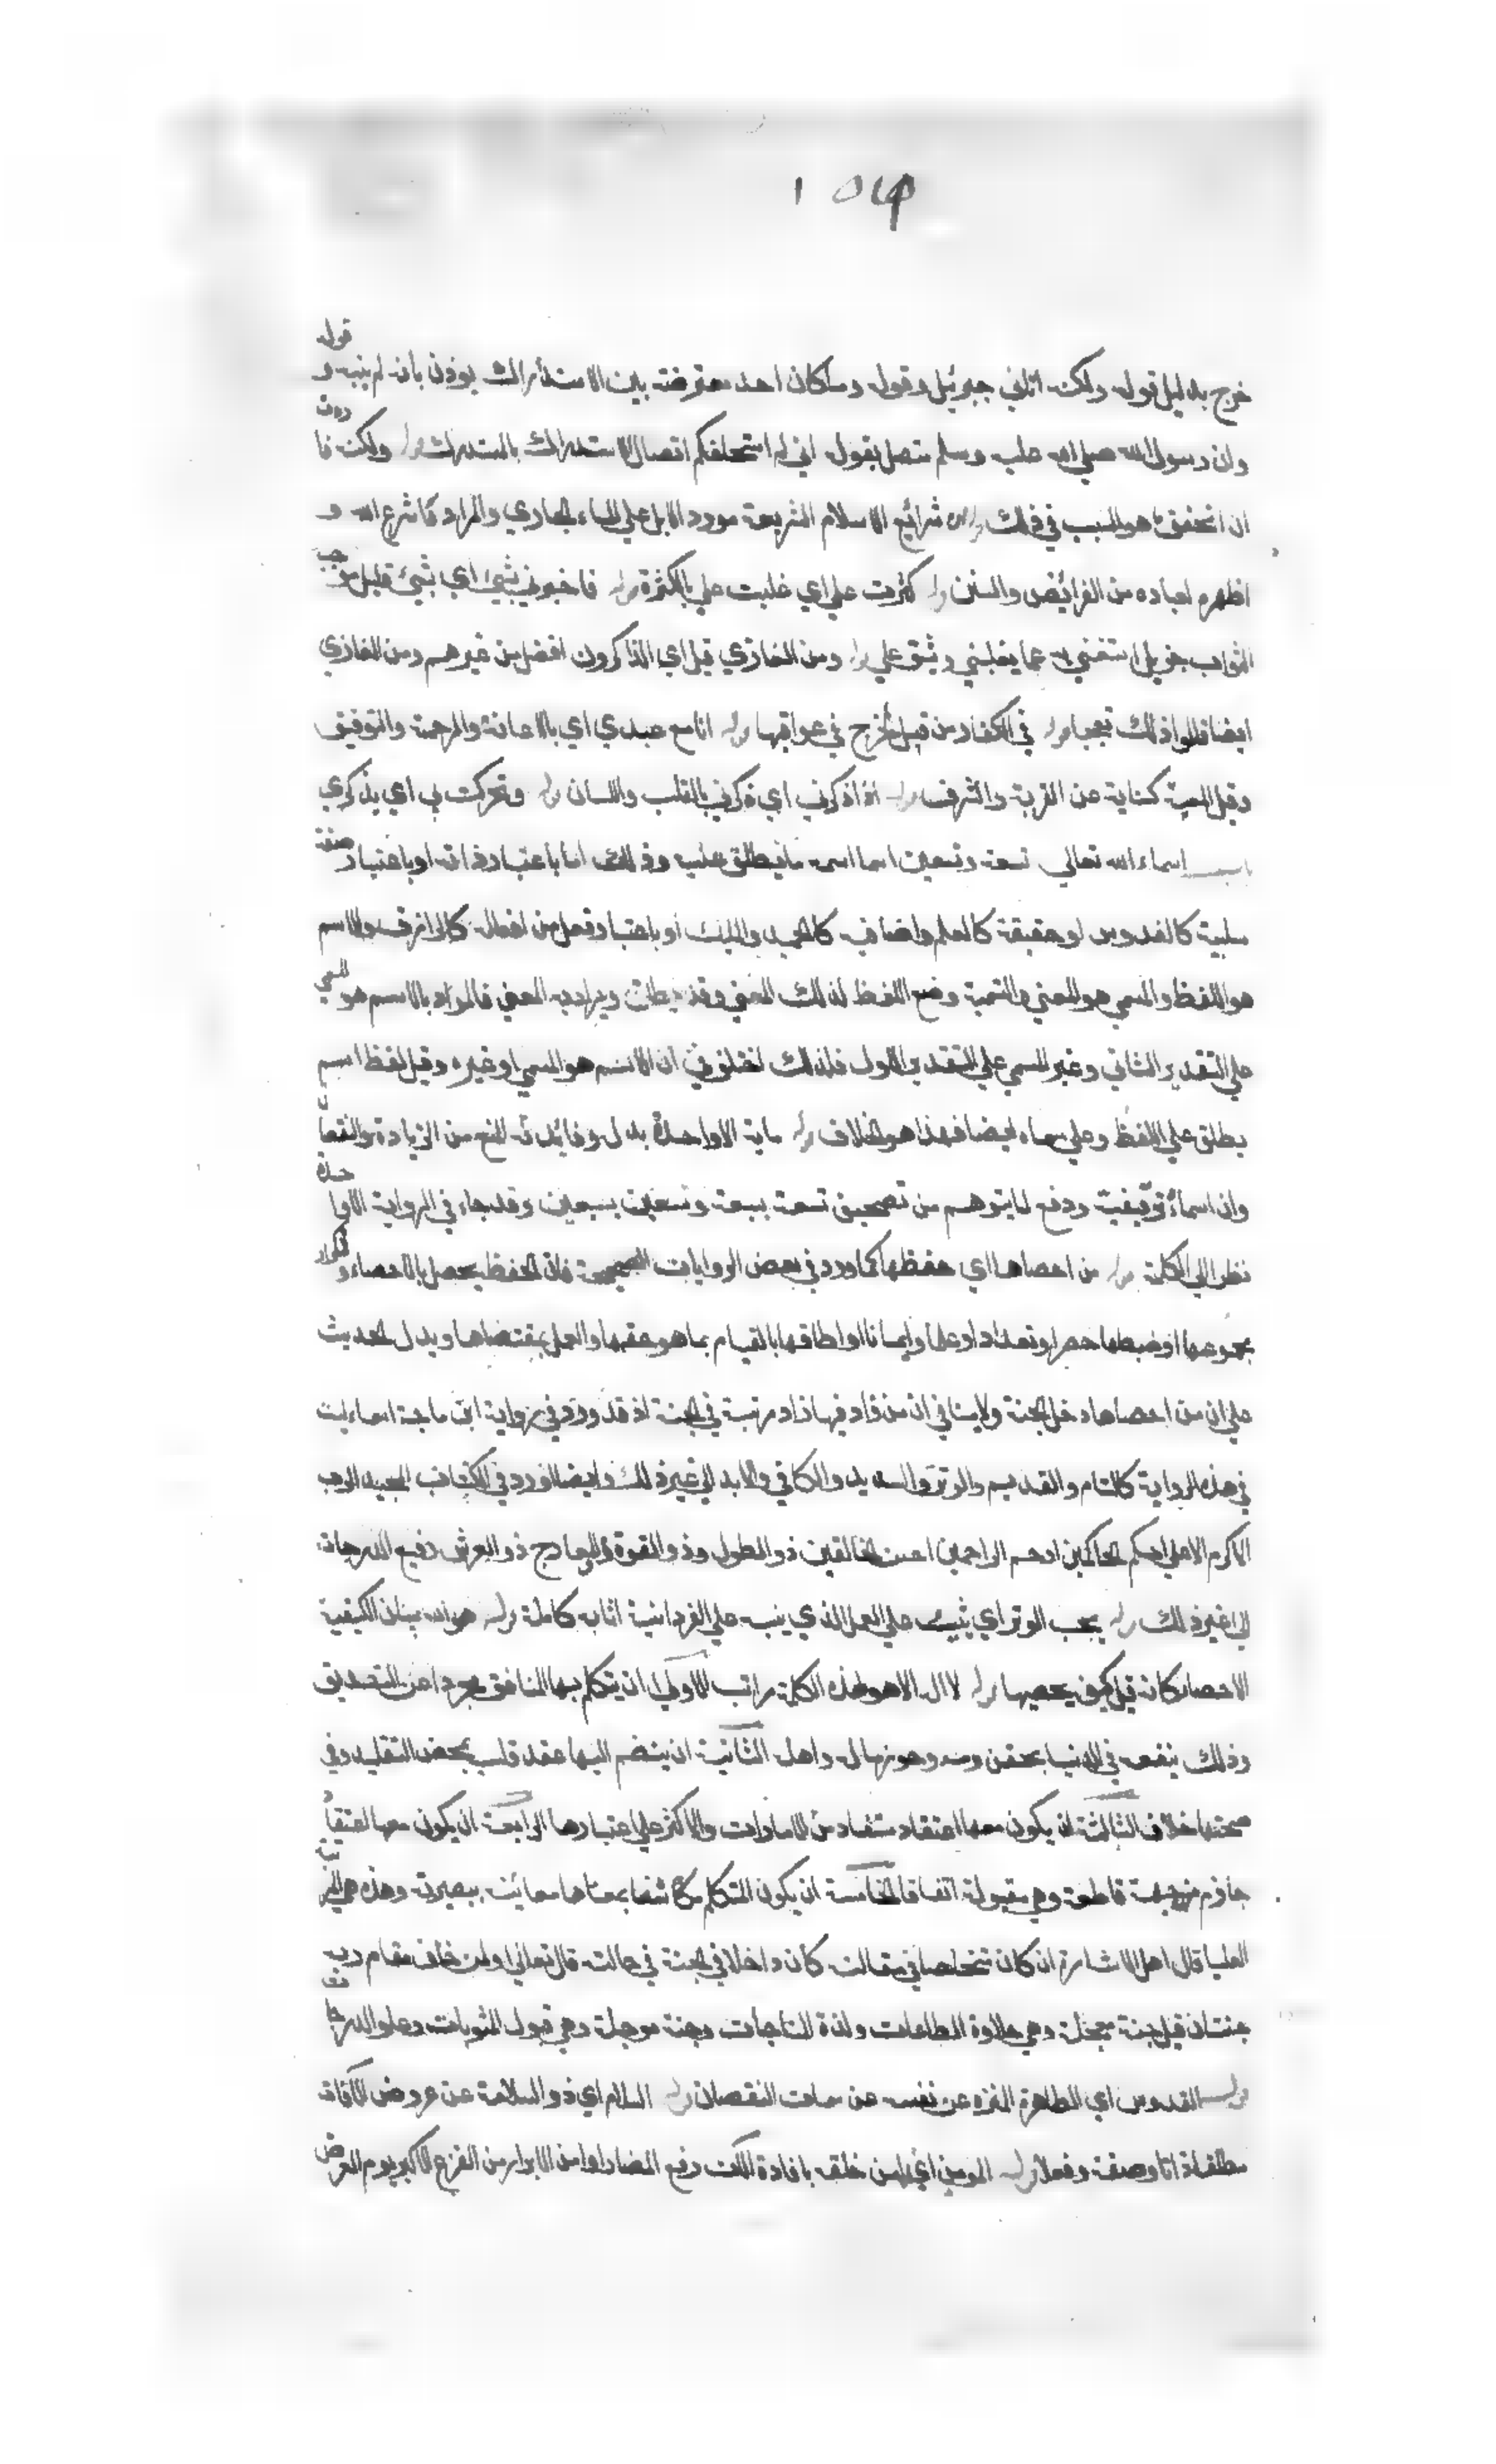 ١٥٤
خرج بدليل قوله ولكنه اتاني جبرئيل وقوله وما كان احد معترضة بين الاستدراك يوذن بانه لم ينبه و قوله
وان رسول الله صلي الله عليه وسلم متصل بقوله اني لم استحلفكم اتصال الاستدراك بالمستدرك قوله ولكنه فا ردت
ان اتحقق ما هو السبب في ذلك قوله ان شرائع الاسلام الشريعة مورد الابل علي الماء الجاري والمراد ما شرع الله و
اظهره لعباده من الفرائض والسنن قوله كثرت علي اي غلبت علي بالكثرة قوله فاخبرني بشيئ اي بشيئ قليل موجب
الثواب جزيل استغني به عما يغلبني ويشق علي قوله ومن الغازي قيل اي الذاكرون افضل من غيرهم ومن الغازي
ايضا قالوا ذلك تعجبا قوله في الكفار من قبيل يخرج في عراقيبها قوله انا مع عبدي اي بالاعانة والرحمة والتوفيق
وقيل المعية كناية عن القربة والشرف قوله اذا ذكرني اي ذكرني بالقلب واللسان قوله وتحركت بي اي بذكري
باب اسماء الله تعالي تسعة وتسعين اسما اسمه ما يطلق عليه وذلك اما باعتبار ذاته او باعتبار صفة
سلبية كالقدوس او حقيقة كالعليم واضافية كالحميد والمليك او باعتبار فعل من افعاله كالرازق والاسم
هو اللفظ والمسمي هو المعني والتسمية وضع اللفظ لذلك المعني وقد يطلق ويراد به المعني فالمراد بالاسم هو المسمي
علي التقدير الثاني وغير المسمي علي التقدير الاول فلذلك اختلف في ان الاسم هو المسمي او غيره وقيل لفظ اسم
يطلق علي اللفظ وعلي مسماه ايضا فهذا هو الخلاف قوله ماية الا واحدة بدل وفائدته المنع من الزيادة والنقصان
وان اسماءه توقيفية ودفع لما يتوهم من تصحيف تسعة بسبعة وتسعين بسبعين وقد جاء في الرواية الا واحدة
نظرا الي الكلمة قوله من احصاها اي حفظها كما ورد في بعض الروايات الصحيحة فان الحفظ يحصل بالاحصاء وتكرار
مجموعها او ضبطها حصرا وتعدادا وعلما وايمانا او اطاقها بالقيام بما هو حقها والعمل بمقتضاها ويدل الحديث
علي ان من احصاها دخل الجنة ولا ينافي ان من زاد فيها زاد مرتبة في الجنة اذ قد ورد في رواية ابن ماجة اسماء ليست
في هذه الرواية كالتام والقديم والوتر والسديد والكافي والابد الي غير ذلك وايضا قد ورد في الكتاب المجيد الرب
الاكرم الاعلي احكم الحاكمين ارحم الراحمين احسن الخالقين ذو الطول وذو القوة ذو المعارج ذو العرش رفيع الدرجات
الي غير ذلك قوله يحب الوتر اي يثيب علي العمل الذي ينبه علي الفردانية اثابه كاملة قوله هو الله بيان الكيفية
الاحصاء كانه قيل كيف يحصيها قوله لا اله الا هو لهذه الكلمة مراتب الاولي ان يتكلم بها المنافق مجردا عن التصديق
وذلك ينفعه في الدنيا بحقن دمه وحرز ماله واهله الثانية ان ينضم اليها عقد قلب بمحض التقليد وفي
صحتها خلاف الثالثة ان يكون معها اعتقاد مستفاد من الامارات والاكثر علي اعتبارها الرابعة ان يكون معها اعتقاد
جازم من جهة قاطعة وهي مقبولة اتفاقا الخامسة ان يكون المتكلم مكاشفا بمعناها معائنه ببصيرته وهذه هي الرتبة
العليا قال اهل الاشارة ان كان مخلصا في مقالته كان داخلا في الجنة في حالته قال تعالي ولمن خاف مقام ربه
جنتان قيل جنة معجلة وهي حلاوة الطاعات ولذة المناجات وجنة موجلة وهي قبول المثوبات وعلو الدرجات
قوله القدوس اي الطاهر المنزه عن نفسه عن سمات النقصان قوله السلام اي ذو السلامة عن عروض الافات
مطلقا ذاتا وصفة وفعلا قوله المومن اي امن خلقه بافادة الات دفع المضار او امن الابرار من الفزع الاكبر يوم العرض